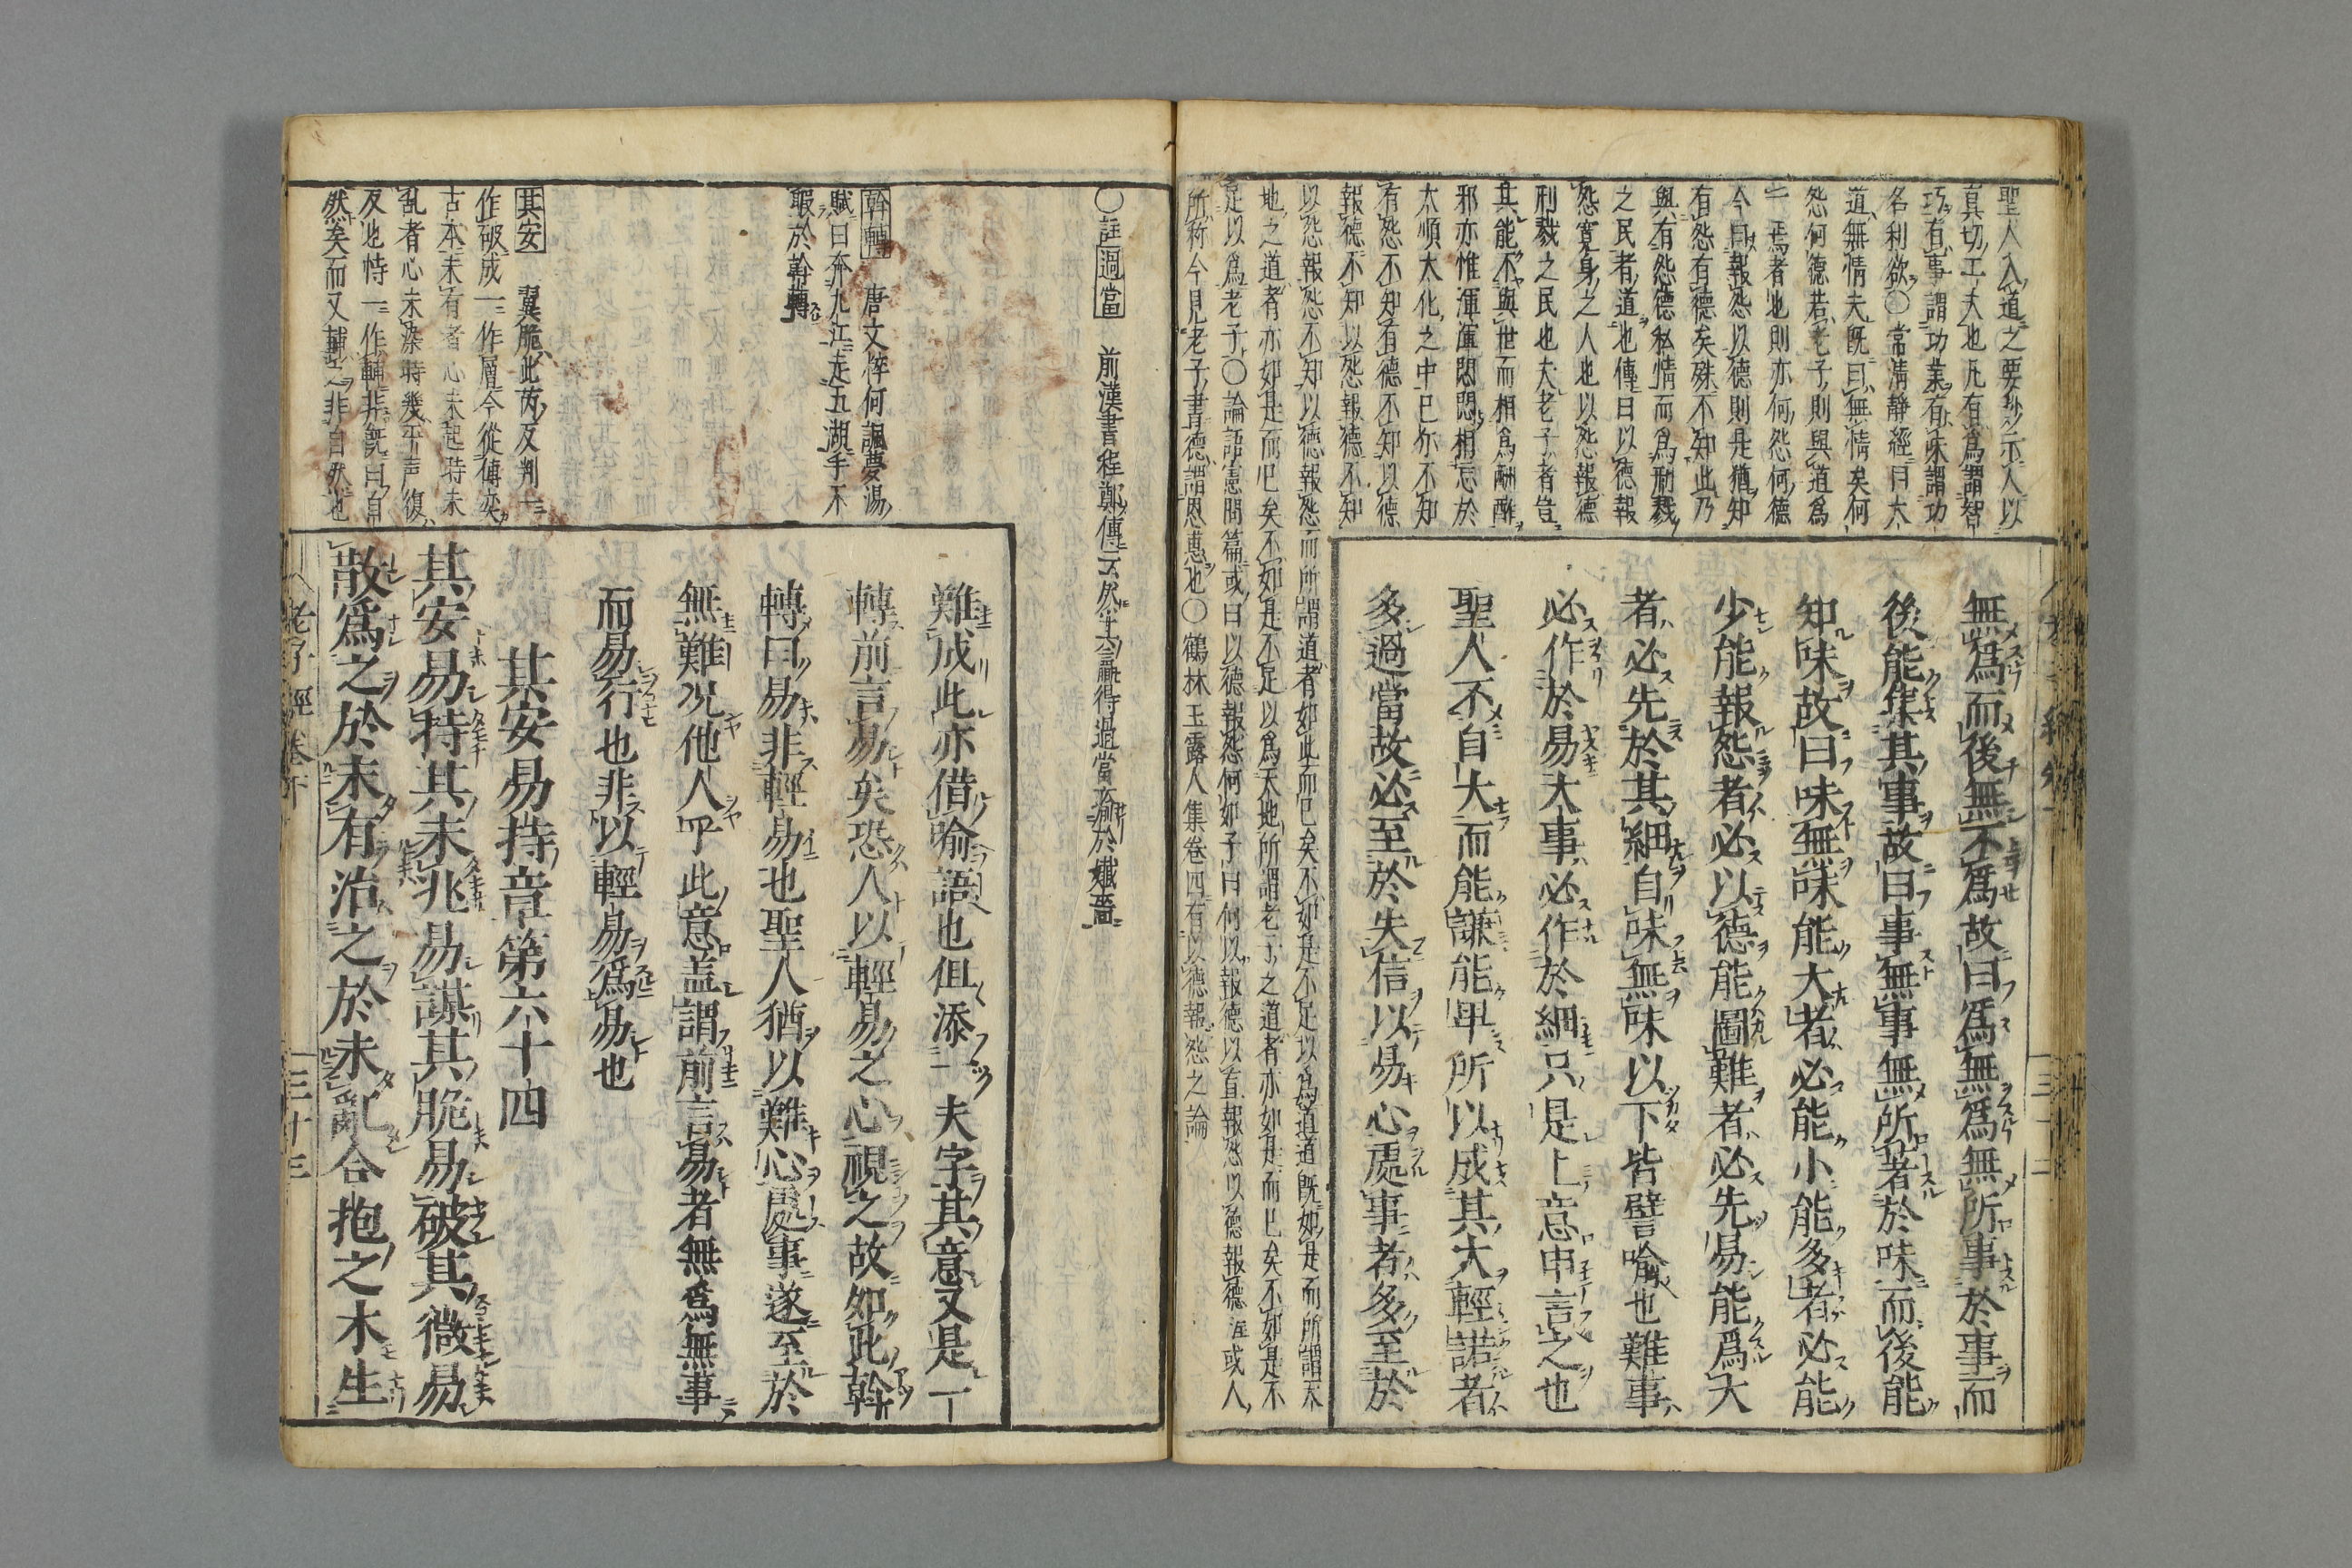 聖人入道之要妙示人以
真切工夫也凡有爲謂智
巧有事謂功業有味謂功
名利欲〇常清靜經曰大
道無情夫既曰無情矣何
怨何德若老子則與道爲
一焉者也則亦何怨何德
今曰報怨以德則是猶知
有怨有德矣殊不知此乃
與有怨德私情而爲刑戮
之民者道也傳曰以德報
怨寬身之人也以怨報德
刑戮之民也夫老子者豈
其能不與世而相爲酬酢
邪亦惟渾渾悶悶相忘於
太順太化之中已尓不知
有怨不知有德不知以德
報德不知以怨報德不知
以怨報怨不知以德報怨而所謂道者如此而已矣不如是不足以爲道道既如是而所謂天
地之道者亦如是而已矣不如是不足以爲天地所謂老子之道者亦如是而已矣不如是不
足以爲老子〇論語憲問篇或曰以德報怨何如子曰何以報德以直報怨以德報德註或人
所称今見老子書德謂恩惠也〇鶴林玉露人集卷四有以德報怨之論
無爲而後無不爲故曰爲無爲無所事於事而
後能集其事故曰事無事無所著於味而後能
知味故曰味無味能大者必能小能多者必能
少能報怨者必以德能圖難者必先易能爲大
者必先於其細自味無味以下皆譬喻也難事
必作於易大事必作於細只是上意申言之也
聖人不自大而能謙能卑所以成其大輕諾者
多過當故必至於失信以易心處事者多至於
〇註過當 前漢書程鄭傳云然
得過當
幹轉 唐文粹何諷夢湯
賦曰奔九江走五湖手不
暇於幹轉
其安 翼脆此芮反判一
作破成一作層今從傅奕
古本未有者心未起時未
乱者心未染時幾平声復
反也恃一作輔非既曰自
然矣而又輔之非自然也
難成此亦借喻語也但添一夫字其意又是一
轉前言易矣恐人以輕易之心視之故如此幹
轉曰易非輕易也聖人猶以難心處事遂至於
無難况他人乎此意盖謂前言易者無爲無事
而易行也非以輕易爲易也
其安易持章第六十四
其安易持其未兆易謀其脆易破其微易
散爲之於未有治之於未亂合抱之木生
老子經卷下
三十三